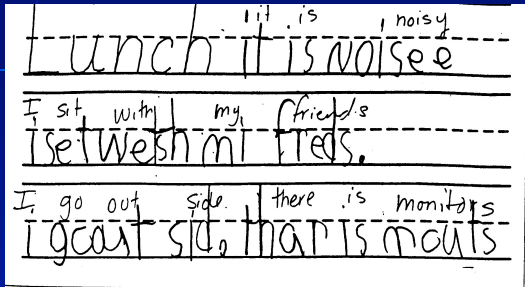 it is noisy
Lunch it is noisee
I sit with my friends
i set wesh mi freds.
I go out side. there is monitors
i goaut sid, thar is mouts